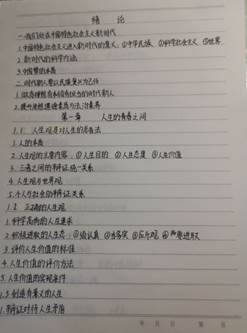 绪 论
一.我们处在中国特色社会主义新时代
1.中国特色社会主义进入新时代的意义:①中华民族 ②科学社会主义 ③世界
2.新时代的科学方法
3.中国梦的本质
二.时代新人要以民族复兴为己任
1.做有理想有本领有担当的时代新人
2.提升思想道德素质与法治素养
第一章 人生的青春之问
1.1 人生观是对人生的总看法
1.人的本质
2.人生观的主要内容:①人生目的 ②人生态度 ③人生价值
3.三者之间的辩证统一关系
4.人生观与世界观
5.个人与社会的辩证关系
1.2 正确的人生观
1.科学高尚的人生追求
2.积极进取的人生态:①须认真 ②当务实 ③应乐观 ④要进取
3.评价人生价值的标准
4.人生价值的评价方法
5.人生价值的实现条件
1.3 创造有意义的人生
1.辩证对待人生矛盾